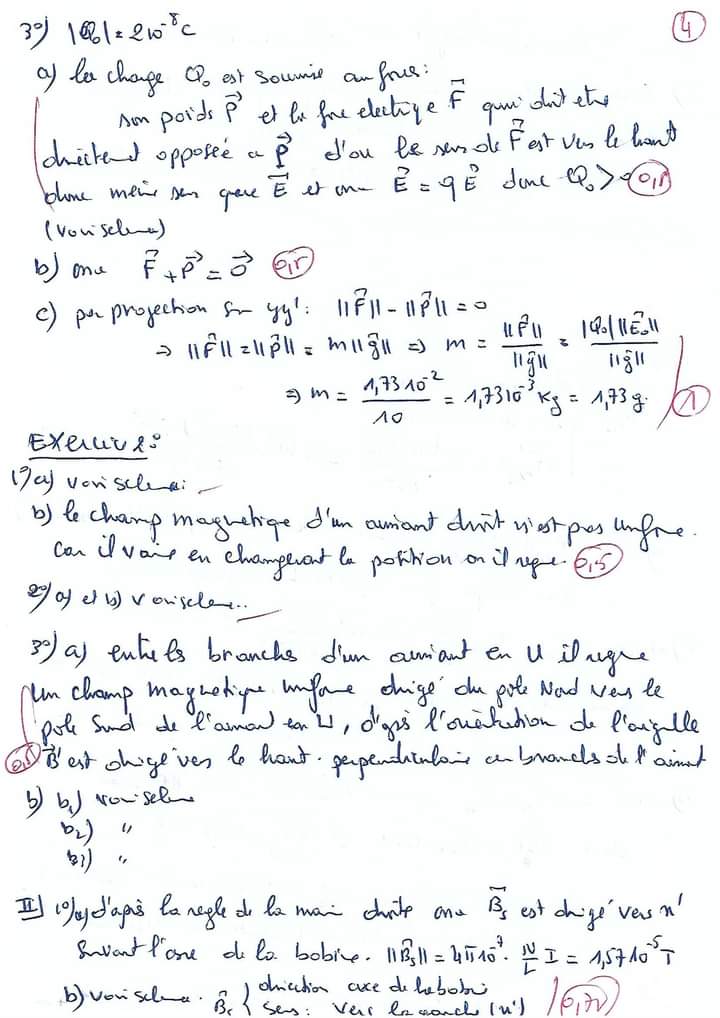 4
3°) |Q₀| = 2 10⁻⁸ C
a) la charge Q₀ est soumise au forces:
son poids P⃗ et la force electrique F⃗ qui doit etre
directement opposée a P⃗ d'ou le sens de F⃗ est vers le haut
donc même sens que E⃗ et on a E⃗ = q E⃗ donc Q₀ >
(voir schema)
b) on a F⃗ + P⃗ = 0⃗ 0,5
c) par projection sur yy': ||F⃗|| - ||P⃗|| = 0
⇒ ||F⃗|| = ||P⃗|| = m ||g⃗|| ⇒ m = ||F⃗|| / ||g⃗|| = |Q₀| ||E⃗₀|| / ||g⃗||
⇒ m = 1,73 10⁻² / 10 = 1,73 10⁻³ Kg = 1,73 g. 1
Exercice 2:
1°) a) voir schema:
b) le champ magnetique d'un aimant droit n'est pas uniforme.
car il varie en changeant la position où il regne. 0,5
2°) a) et b) voir schema..
3°) a) entre les branches d'un aimant en U il regne
un champ magnetique uniforme dirigé du pole Nord vers le
pole Sud de l'aimant en U, d'après l'orientation de l'aiguille
B⃗ est dirigé vers le haut. perpendiculaire au branches de l'aimant
b) b₁) voir schema
b₂) "
b3) "
II 1°) a) d'après la regle de la main droite on a B⃗s est dirigé vers x'
suivant l'axe de la bobine. ||B⃗s|| = 4π10⁻⁷. N/L I = 1,57 10⁻⁵ T
b) voir schema. B⃗s { direction axe de la bobine
sens: vers la gauche (x') 0,75